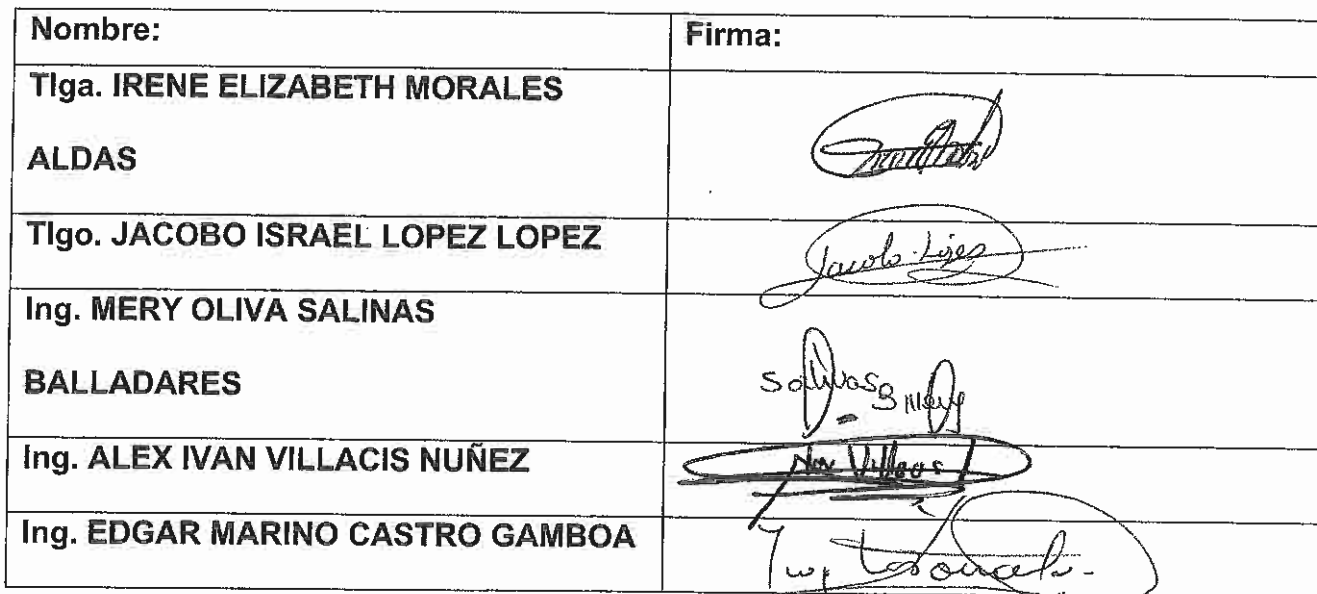 Nombre: Firma:
Tlga. IRENE ELIZABETH MORALES
ALDAS
Tlgo. JACOBO ISRAEL LOPEZ LOPEZ
Jacobo López
Ing. MERY OLIVA SALINAS
BALLADARES
Salinas B Mery
Ing. ALEX IVAN VILLACIS NUÑEZ
Ing. EDGAR MARINO CASTRO GAMBOA